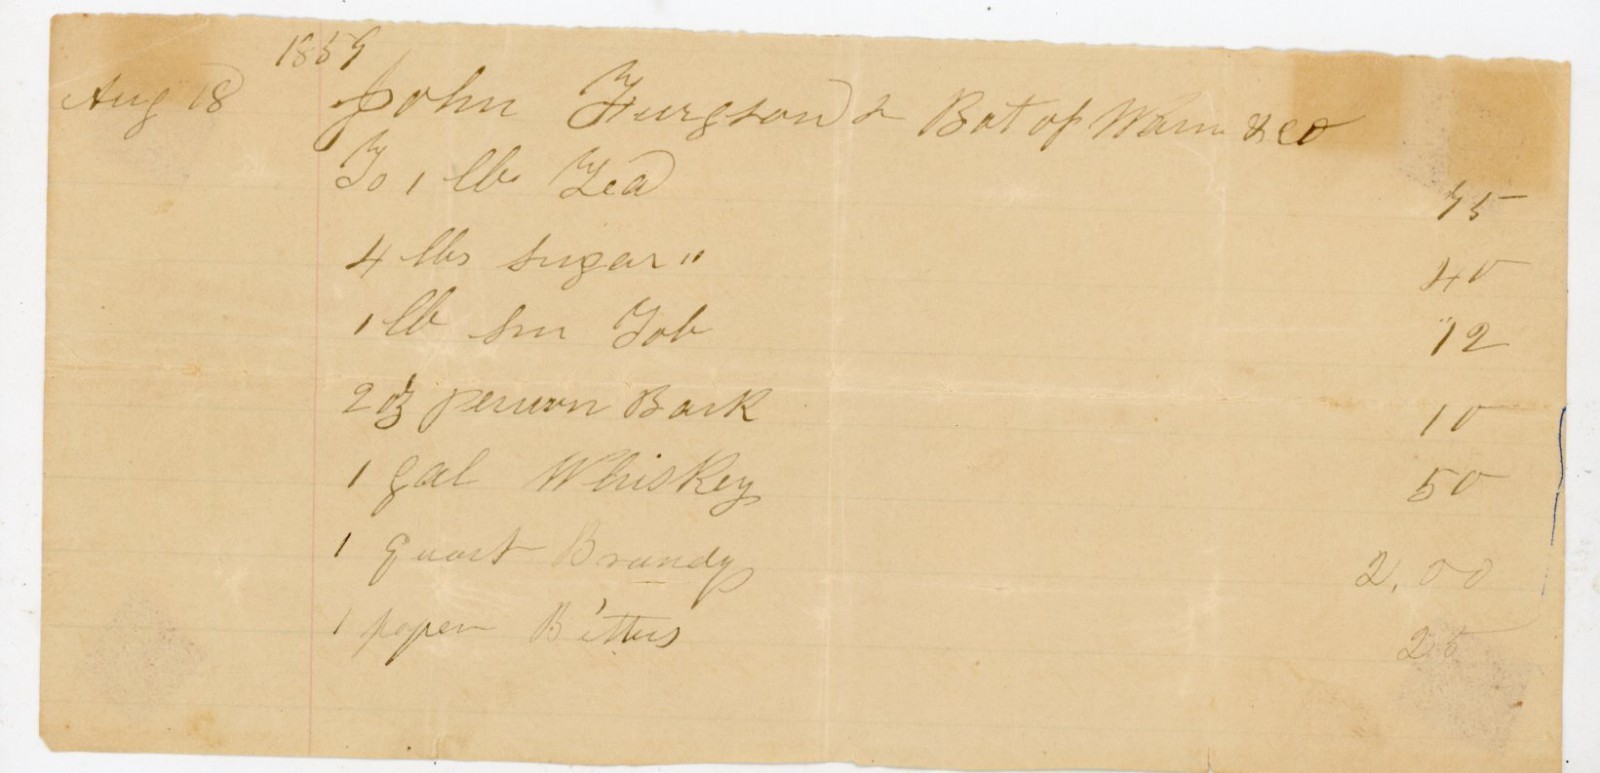 1859
Aug 18 John Furgson Bot of Warn & co
To 1 lbs Tea 75
4 lbs sugar " 40
1 lb sm Tob 12
2 oz peruvn Bark 10
1 gal Whiskey 50
1 quart Brandy 2,00
1 paper Bitters 25